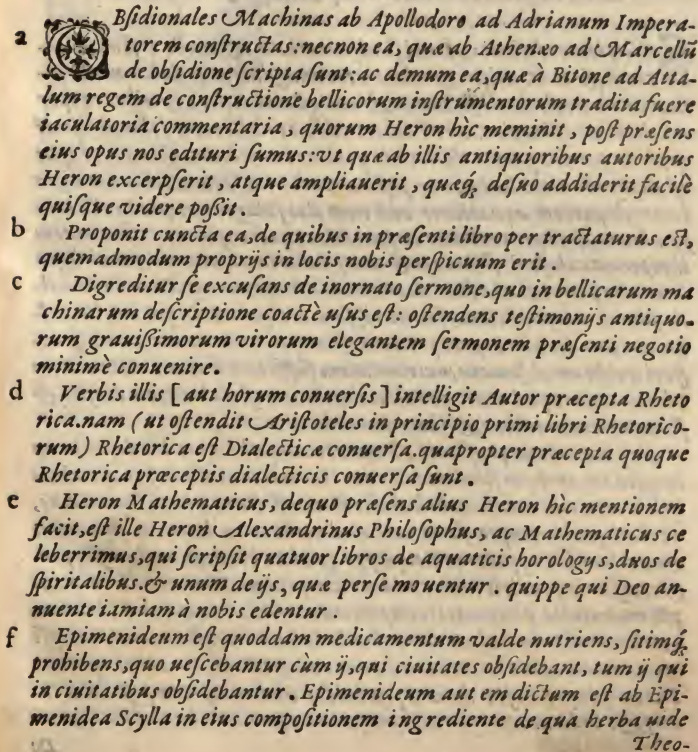 a OBsidionales Machinas ab Apollodoro ad Adrianum Impera-
torem constructas:necnon ea, quæ ab Athenæo ad Marcellũ
de obsidione scripta sunt:ac demum ea,quæ à Bitone ad Atta-
lum regem de constructione bellicorum instrumentorum tradita fuere
iaculatoria commentaria, quorum Heron hìc meminit, post præsens
eius opus nos edituri sumus:vt quæ ab illis antiquioribus autoribus
Heron excerpserit, atque ampliauerit, quæq́; de suo addiderit facilè
quisque videre possit.
b Proponit cuncta ea,de quibus in præsenti libro per tractaturus est,
quemadmodum proprijs in locis nobis perspicuum erit.
c Digreditur se excusans de inornato sermone,quo in bellicarum ma
chinarum descriptione coactè usus est: ostendens testimonijs antiquo-
rum grauissimorum virorum elegantem sermonem præsenti negotio
minimè conuenire.
d Verbis illis [aut horum conuersis] intelligit Autor præcepta Rheto
rica.nam (ut ostendit Aristoteles in principio primi libri Rhetorico-
rum) Rhetorica est Dialecticæ conuersa.quapropter præcepta quoque
Rhetorica præceptis dialecticis conuersa sunt.
e Heron Mathematicus, dequo præsens alius Heron hìc mentionem
facit,est ille Heron Alexandrinus Philosophus, ac Mathematicus ce
leberrimus,qui scripsit quatuor libros de aquaticis horologijs,duos de
spiritalibus.& unum de ijs, quæ perse mouentur. quippe qui Deo an-
nuente iamiam à nobis edentur.
f Epimenideum est quoddam medicamentum valde nutriens, sitimq́;
prohibens,quo uescebantur cùm ij,qui ciuitates obsidebant, tum ij qui
in ciuitatibus obsidebantur. Epimenideum aut em dictum est ab Epi-
menidea Scylla in eius compositionem ingrediente de qua herba uide
Theo-